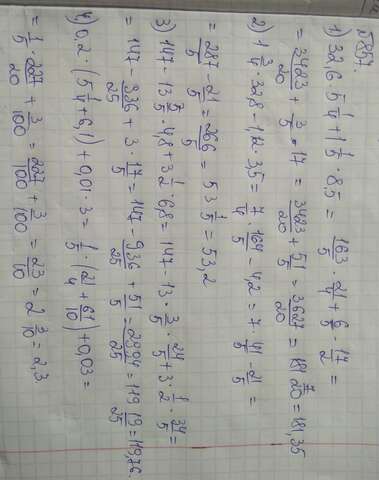 №857.
1) 32,6 · 5 1/4 + 1 1/5 · 8,5 = 163/5 · 21/4 + 6/5 · 17/2 =
= 3423/20 + 3/5 · 17 = 3423/20 + 51/5 = 3627/20 = 181 7/20 = 181,35
2) 1 3/4 · 32,8 - 1,2 · 3,5 = 7/4 · 164/5 - 4,2 = 7 · 41/5 - 21/5 =
= 287/5 - 21/5 = 266/5 = 53 1/5 = 53,2
3) 147 - 13 3/5 · 4,8 + 3 1/2 · 6,8 = 147 - 13 · 3/5 · 24/5 + 3 · 1/2 · 34/5 =
= 147 - 936/25 + 3 · 17/5 = 147 - 936/25 + 51/5 = 2994/25 = 119 19/25 = 119,76.
4) 0,2 · (5 1/4 + 6,1) + 0,01 · 3 = 1/5 · (21/4 + 61/10) + 0,03 =
= 1/5 · 227/20 + 3/100 = 227/100 + 3/100 = 23/10 = 2 3/10 = 2,3